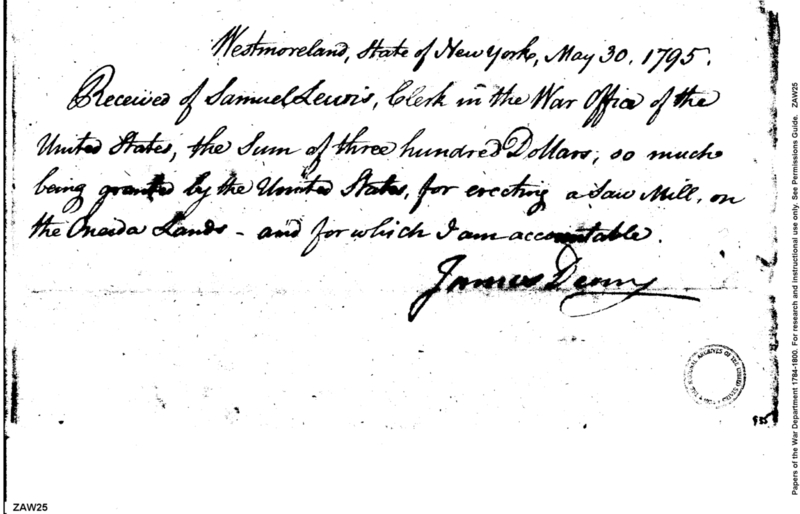 Westmoreland, State of New York, May 30. 1795.
Received of Samuel Lewis, Clerk in the War Office of the
United States, the Sum of three hundred Dollars, so much
being granted by the United States, for erecting a Saw Mill, on
the Oneida Lands - and for which I am accountable.
James Deany
THE NATIONAL ARCHIVES OF THE UNITED STATES
935
ZAW25
Papers of the War Department 1784-1800. For research and instructional use only. See Permissions Guide. ZAW25